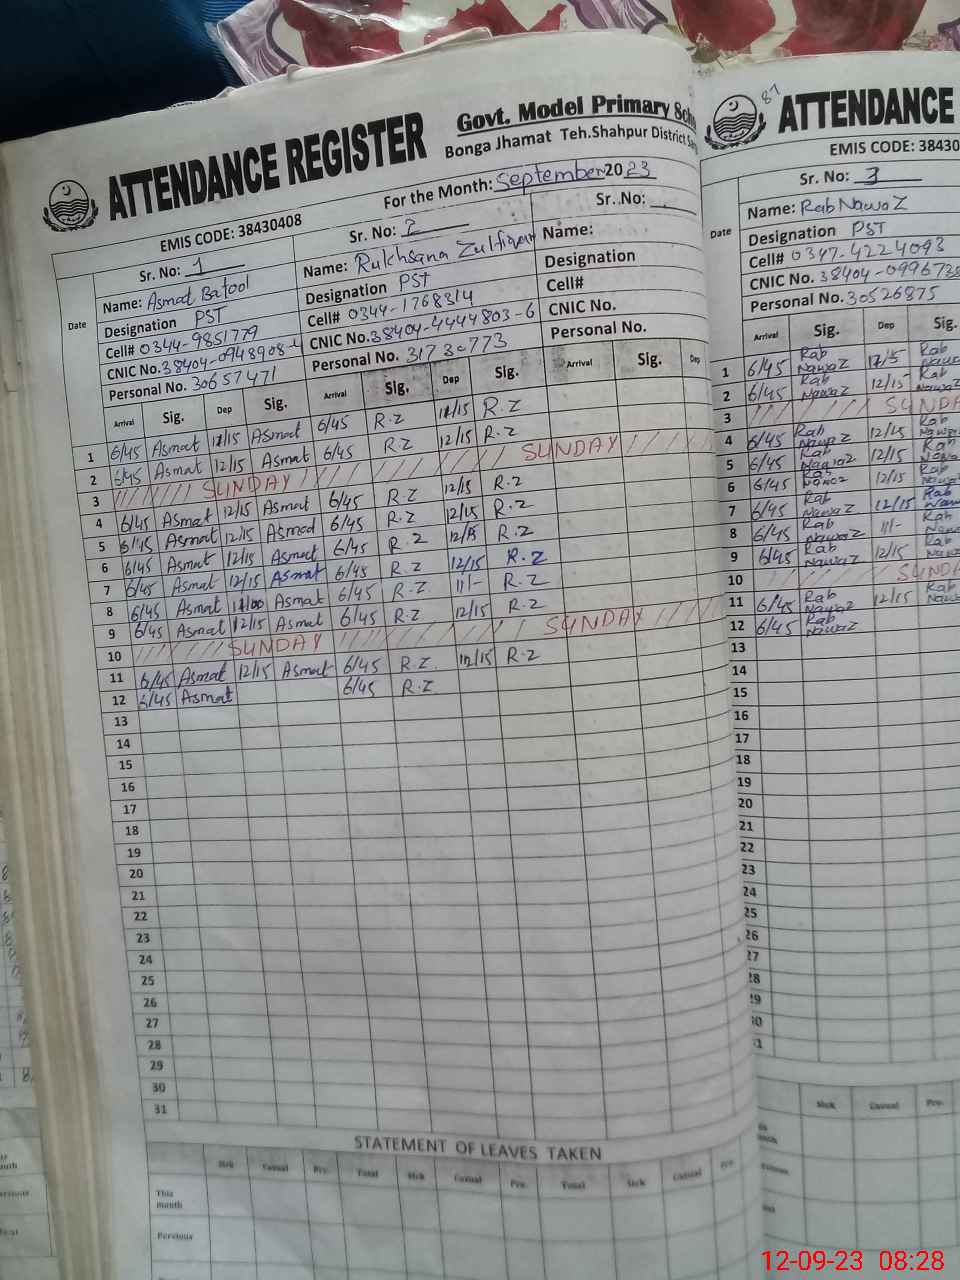 ATTENDANCE REGISTER
Govt. Model Primary
Bonga Jhamat Teh.Shahpur District
EMIS CODE: 38430408
For the Month: September 2023
Date
Sr. No: 1
Name: Asmat Batool
Designation PST
Cell# 0344-9851779
CNIC No. 38404-0948908-4
Personal No. 30657471
Sr. No: 2
Name: Rukhsana Zulfiqar
Designation PST
Cell# 0344-1768314
CNIC No. 38404-4444803-6
Personal No. 31730773
Sr. No:
Name:
Designation
Cell#
CNIC No.
Personal No.
Arrival Sig. Dep Sig. Arrival Sig. Dep Sig. Arrival Sig. Dep
1 6/45 Asmat 12/15 Asmat 6/45 R.Z 12/15 R.Z
2 6/45 Asmat 12/15 Asmat 6/45 R.Z 12/15 R.Z
3 SUNDAY SUNDAY
4 6/45 Asmat 12/15 Asmat 6/45 R.Z 12/15 R.Z
5 6/45 Asmat 12/15 Asmad 6/45 R.Z 12/15 R.Z
6 6/45 Asmat 12/15 Asmat 6/45 R.Z 12/15 R.Z
7 6/45 Asmat 12/15 Asmat 6/45 R.Z 12/15 R.Z
8 6/45 Asmat 11/00 Asmat 6/45 R.Z 11/- R.Z
9 6/45 Asmat 12/15 Asmat 6/45 R.Z 12/15 R.Z
10 SUNDAY SUNDAY
11 6/45 Asmat 12/15 Asmat 6/45 R.Z 12/15 R.Z
12 6/45 Asmat 6/45 R.Z
13
14
15
16
17
18
19
20
21
22
23
24
25
26
27
28
29
30
31
STATEMENT OF LEAVES TAKEN
Sick Casual Pre. Total Sick Casual Pre. Total Sick Casual Pre.
This month
Pervious
87
ATTENDANCE
EMIS CODE: 38430
Date
Sr. No: 3
Name: Rab Nawaz
Designation PST
Cell# 0347-4224093
CNIC No. 38404-099673
Personal No. 30526875
Arrival Sig. Dep Sig.
1 6/45 Rab Nawaz 12/15 Rab Nawaz
2 6/45 Rab Nawaz 12/15 Rab Nawaz
3 SUNDA
4 6/45 Rab Nawaz 12/15 Rab
5 6/45 Rab Nawaz 12/15 Rab
6 6/45 Rab 12/15 Rab
7 6/45 Rab Nawaz 12/15 Rab
8 6/45 Rab Nawaz 11/- Rab
9 6/45 Rab Nawaz 12/15 Rab
10 SUNDA
11 6/45 Rab Nawaz 12/15 Rab
12 6/45 Rab Nawaz
13
14
15
16
17
18
19
20
21
22
23
24
25
26
27
28
29
30
Sick Casual Pre.
12-09-23 08:28